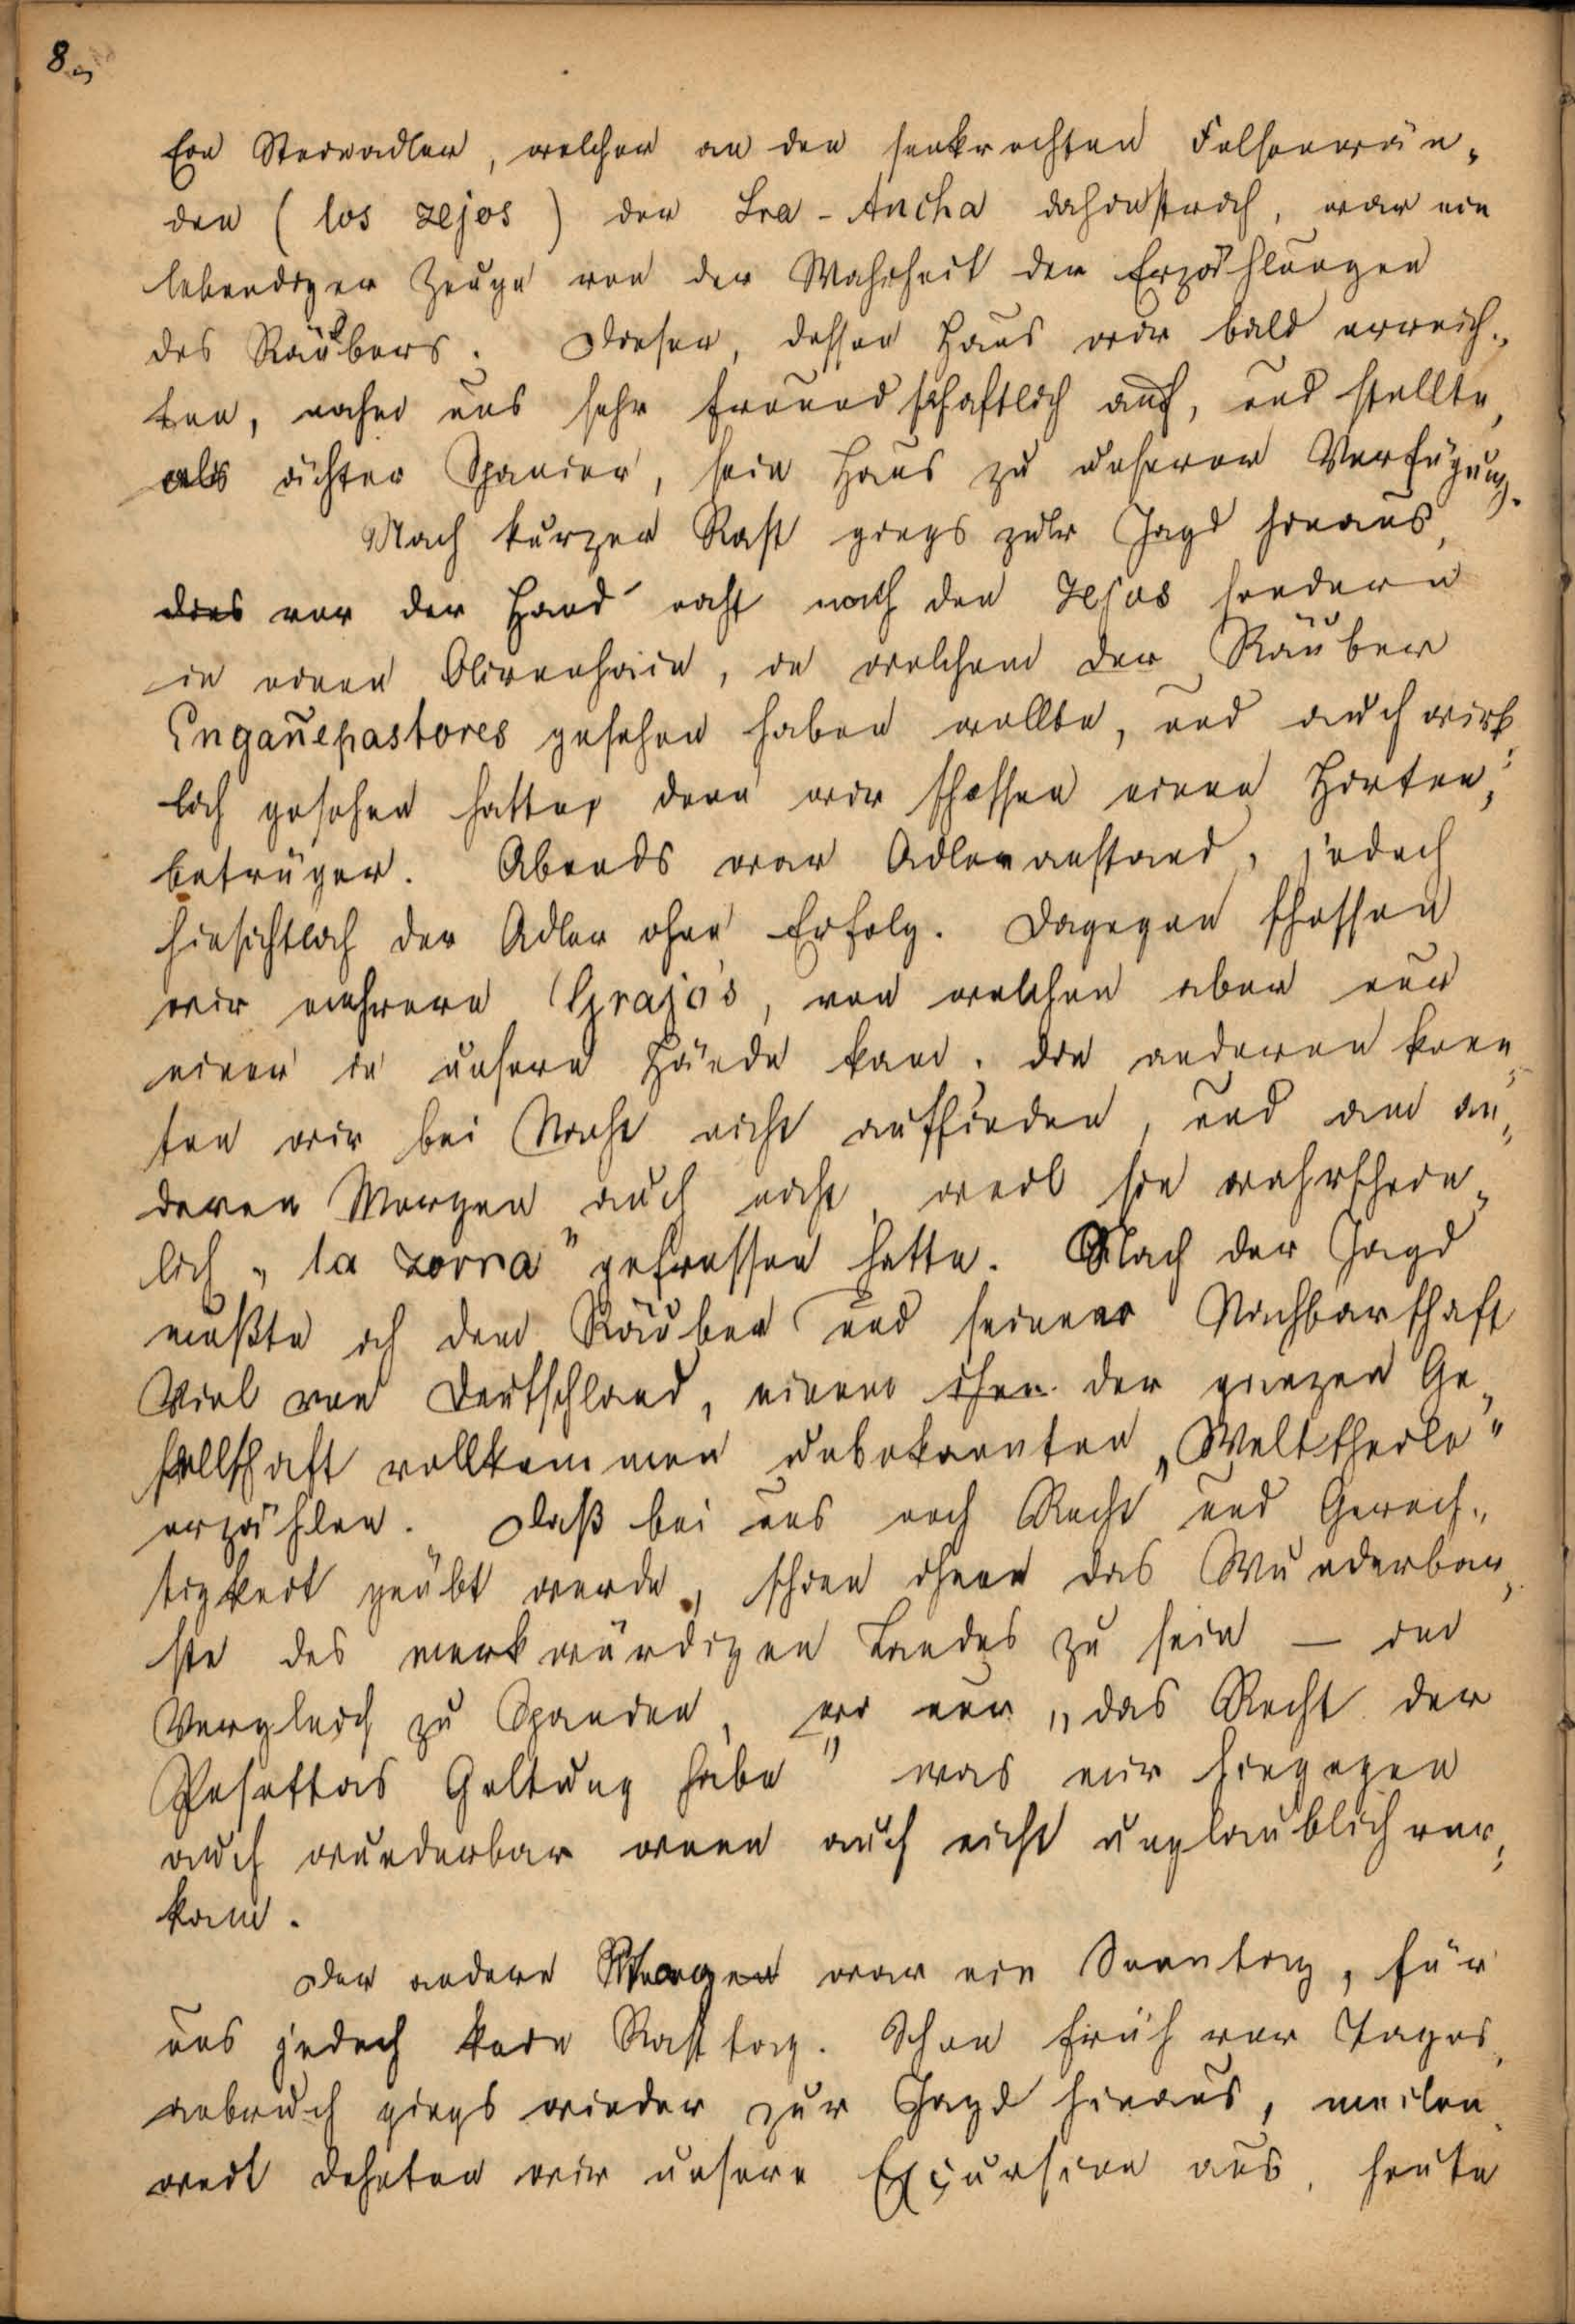 8.,
Ein Steinadler, welcher an den senkrechten Felsenwän-
den (los zejos) der Sra-Ancha dahinstrich, war ein
lebendiger Zeuge von der Wahrheit der Erzählungen
des Räubers. Dieser, dessen Haus wir bald erreich-
ten, nahm uns sehr freundschaftlich auf, und stellte,
als ächter Spanier, sein Haus zu unserer Verfügung.
Nach kurzer Rast giengs zur Jagd hinaus,
dies vor der Hand nicht nach den Zejos sondern
in einen Olivenhain, in welchem der Räuber
Engañepastores gesehen haben wollte, und auch wirk-
lich gesehen hatte, denn wir schossen einen Hirten-
betrüger. Abends war Adleranstand, jedoch
hinsichtlich der Adler ohne Erfolg. Dagegen schossen
wir mehrere Grajos, von welchen aber nur
einer in unsere Hände kam. Die anderen konn-
ten wir bei Nacht nicht auffinden, und am an-
deren Morgen auch nicht, weil sie wahrschein-
lich „la zorra" gefressen hatte. Nach der Jagd
mußte ich dem Räuber und seiner Nachbarschaft
Viel von Deutschland, einem ihm der ganzen Ge-
sellschaft vollkommen unbekannten „Welttheile"
erzählen. Daß bei uns noch Recht und Gerech-
tigkeit geübt werde, schien ihnen das Wunderbar-
ste des merkwürdigen Landes zu sein — im
Vergleich zu Spanien, wo nur „das Recht der
Pesettas Geltung habe" was mir hingegen
auch wunderbar wenn auch nicht unglaublich vor-
kam.
Der andere Morgen war ein Sonntag, für
uns jedoch kein Rasttag. Schon früh vor Tages-
anbruch giengs wieder zur Jagd hinaus, meilen-
weit dehnten wir unsere Excursion aus, heute